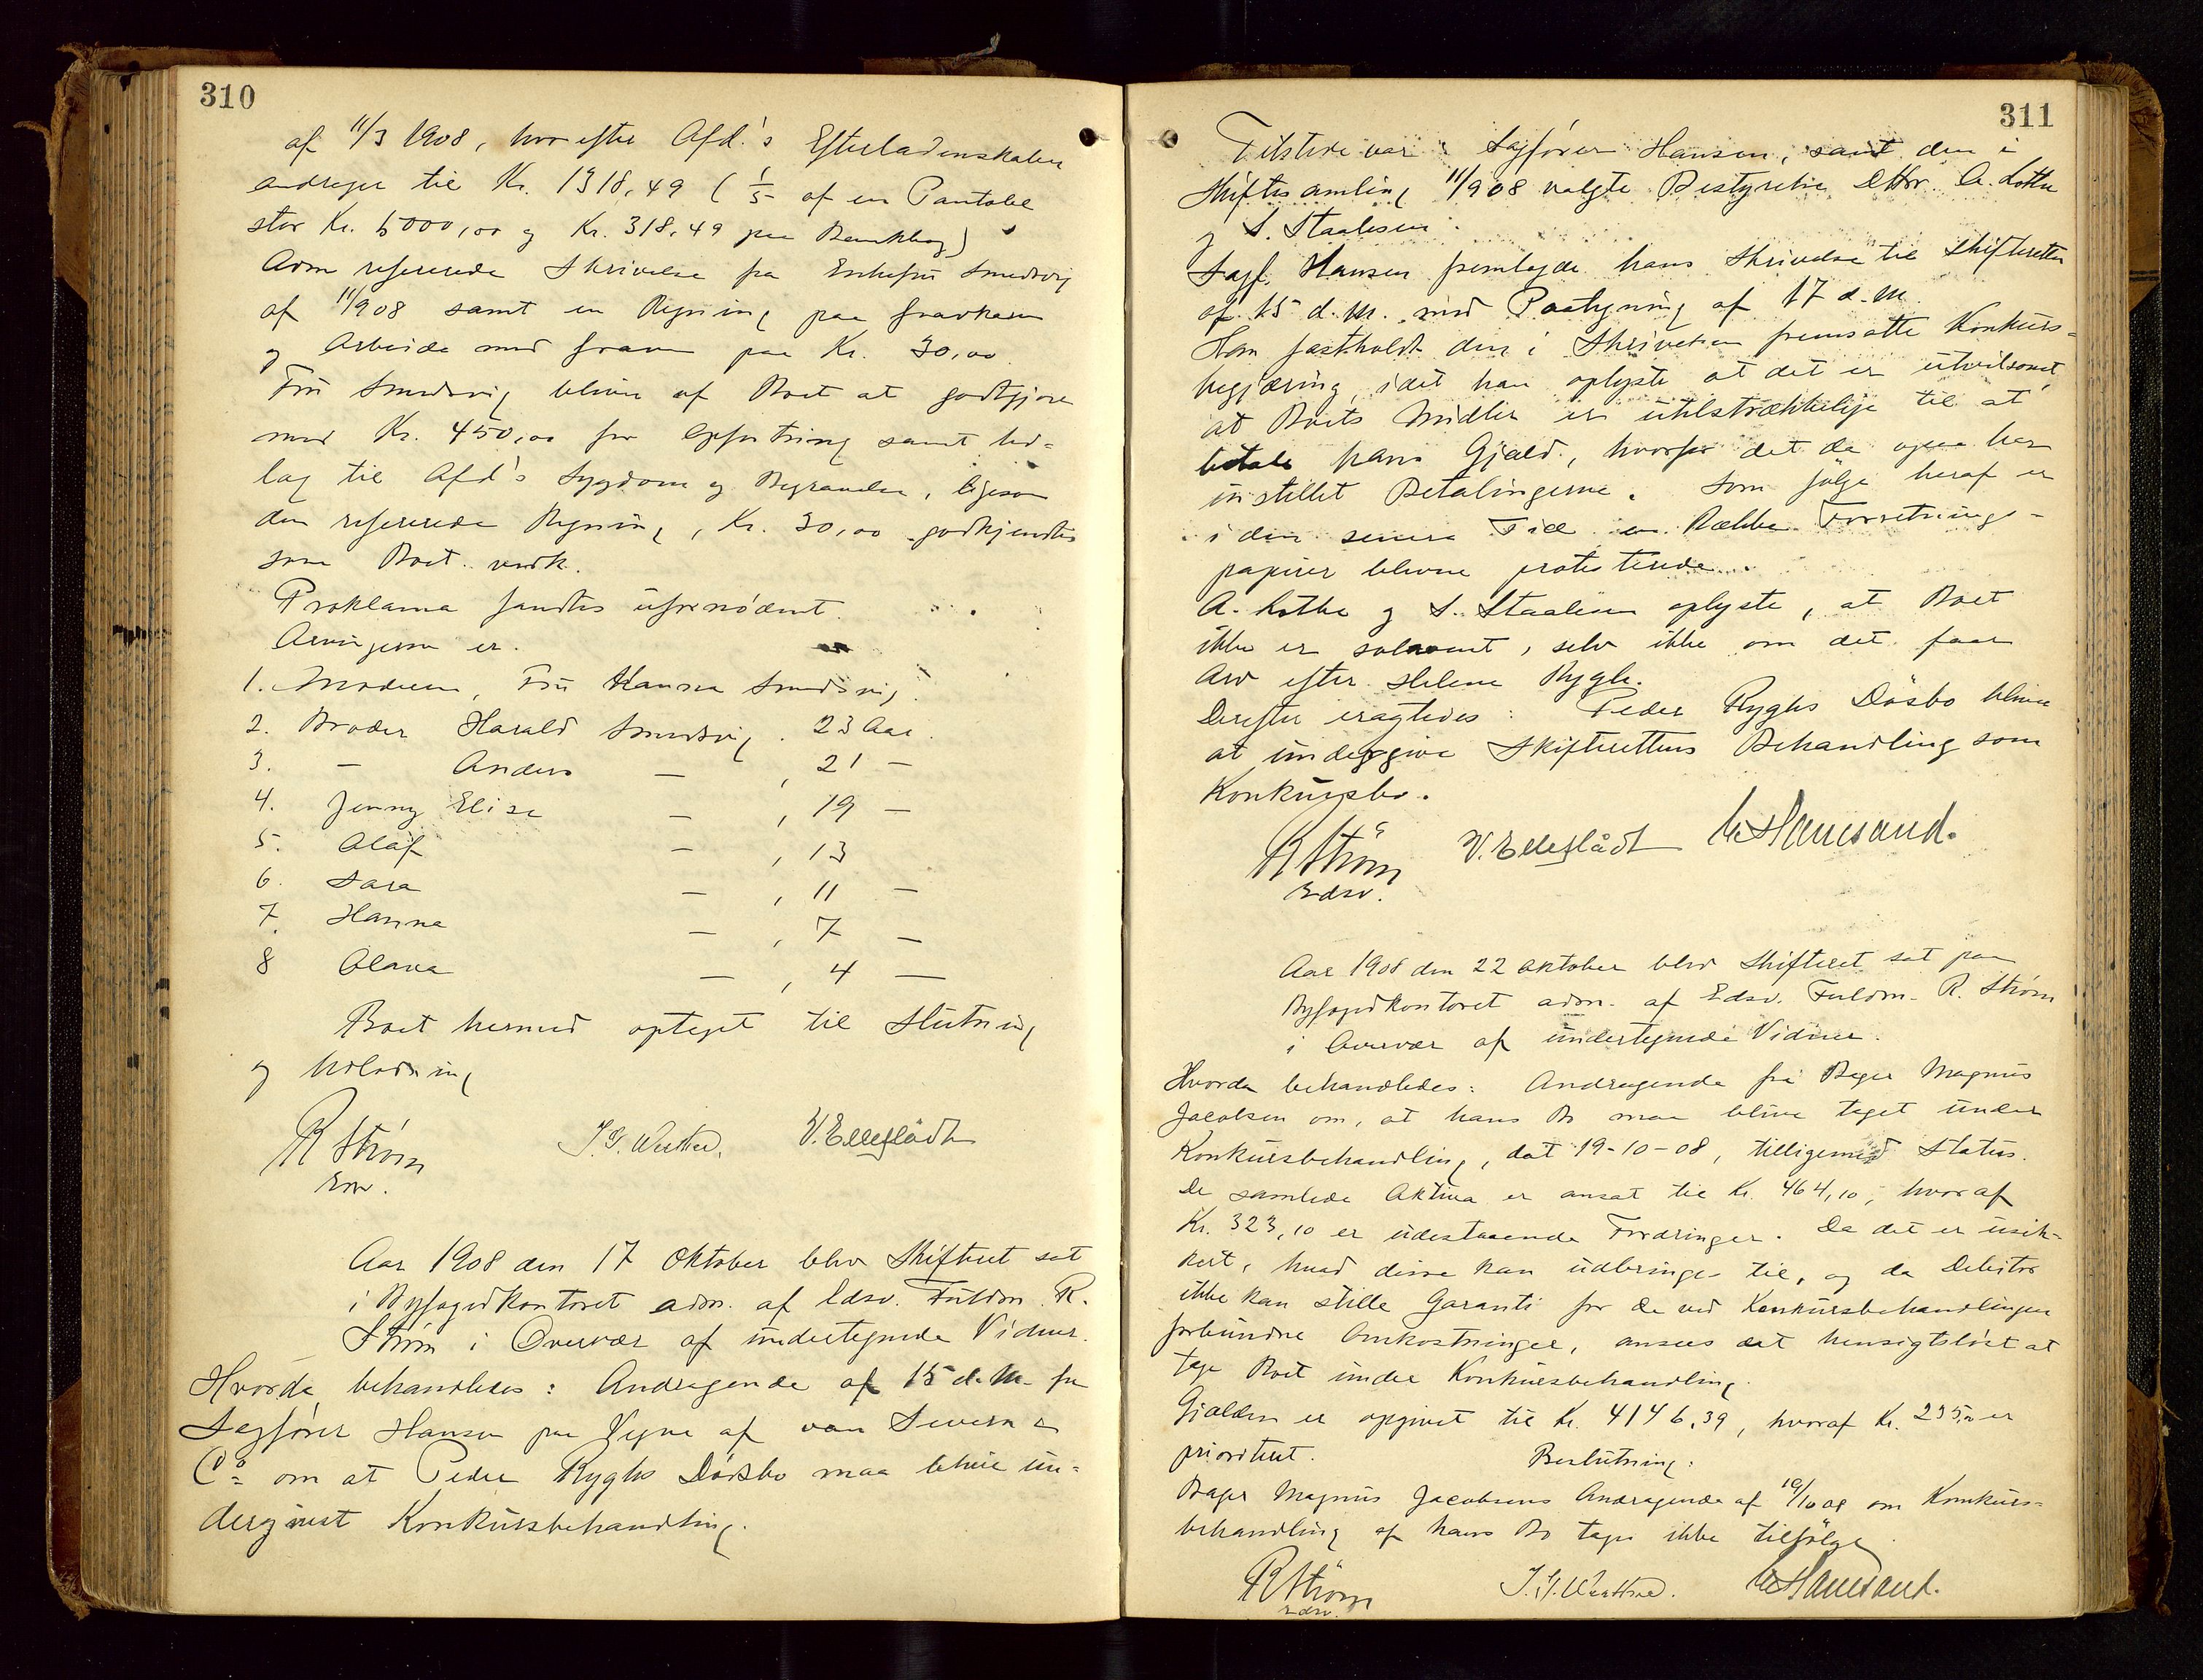 310
af 11/3 1908, hvorefter Afd.'s Efterladenskaber
andrager til Kr. 1318,49 (1/5 af en Pantobl
stor Kr. 5000,00 og Kr. 318,49 paa Bankbog)
Adm refererede Skrivelse fra Enkefru Smedsvig
af 11/908 samt en Regning paa Gravkasse
og Arbeide med Graven paa Kr. 30,00.
Fru Smedsvig bliver af Boet at godtgjøre
med Kr. 450,00 for Opfostring samt Ud=
læg til Afd's Sygdom og Begravelse, ligesom
den refererede Regning, Kr. 30,00 godkjendtes
som Boet vedk.
Proklama fandtes ufornødent.
Arvingerne er.
1. Moderen, Fru Hanna Smedsvig
2. Broder Harald Smedsvig. 23 Aar.
3. — Anders — , 21 —
4. Jenny Elise — , 19 —
5. Olaf — , 13
6. Sara — , 11 —
7. Hanna — , 7 —
8 Olava — , 4 —
Boet hermed optaget til Slutning
og Udlodning
RStrøm J. G. Wester. V. Ellefsådt
Edsv.
Aar 1908 den 17 Oktober blev Skifteret sat
i Byfogedkontoret adm. af Edsv. Fuldm. R.
Strøm i Overvær af undertegnede Vidner.
Hvorda behandledes: Andragende af 15 d.M. fra
Sagfører Hansen paa Vegne af van Severn &
Co om at Peder Ryghs Dødsbo maa blive un=
dergivet Konkursbehandling.
311
Tilstede var: Sagfører Hansen, samt den i
Skiftesamling 11/908 valgte Bestyrelse DHrr. A. Lothe
og S. Staalesen.
Sagf. Hansen fremlagde hans Skrivelse til Skifteretten
af 15 d.M. med Paategning af 17 d.M.
Han fastholdt den i Skrivelsen fremsatte Konkurs=
begjæring, idet han oplyste at det er utvilsomt,
at Boets Midler er utilstrækkelige til at
betale hans Gjæld, hvorfor det da ogsaa har
instillet Betalingerne. Som følge heraf er
i den senere Tid en Række Forretnings-
papirer blevne protesterede.
A. Lothe og S. Staalesen oplyste, at Boet
ikke er solvent, selv ikke om det faar
Arv efter Helene Rygh.
Derefter eragtedes: Peder Ryghs Dösbo bliver
at undergive Skifterettens Behandling som
Konkursbo.
RStrøm V. Ellefsådt Hamsand.
Edsv.
Aar 1908 den 22 Oktober blev Skifteret sat paa
Byfogedkontoret adm. af Edsv. Fuldm. R. Strøm
i Overvær af undertegnede Vidner.
Hvorda behandledes: Andragende fra Bager Magnus
Jacobsen om, at hans Bo maa blive taget under
Konkursbehandling, dat 19-10-08, tilligemed Status.
De samlede Aktiva er ansat til Kr. 464,10, hvoraf
Kr. 323,10 er udestaaende Fordringer. Da det er usik=
kert, hvad disse kan udbringes til, og da Debitor
ikke kan stille Garanti for de ved Konkursbehandlingen
forbundne Omkostninger, ansees det hensigtsløst at
tage Boet under Konkursbehandling.
Gjælden er opgivet til Kr. 4146,39, hvoraf Kr. 235,00 er
prioritert. Beslutning:
Bager Magnus Jacobsens Andragende af 19/10 08 om Konkurs=
behandling af hans Bo tages ikke tilfölge.
RStrøm J. G. Wester. Hamsand.
Edsv.